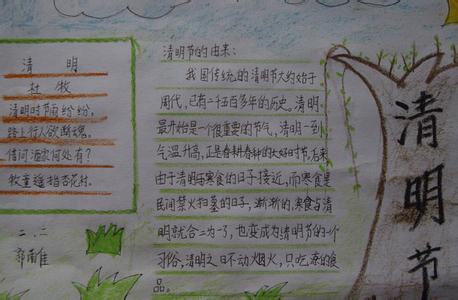 清 明
杜 牧
清明时节雨纷纷,
路上行人欲断魂,
借问酒家何处有?
牧童遥指杏花村.
二、二
清明节的由来:
我国传统的清明节大约始于
周代,已有二千五百多年的历史。清明
最开始是一个很重要的节气,清明一到
气温升高,正是春耕春种的大好时节,后来
由于清明与寒食的日子接近,而寒食是
民间禁火扫墓的日子,渐渐的,寒食与清
明就合二为一了,也变成为清明节的一个
习俗,清明之日不动烟火,只吃凉的食
品。
清明节